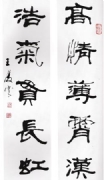 高情薄霄漢
浩氣貫長虹